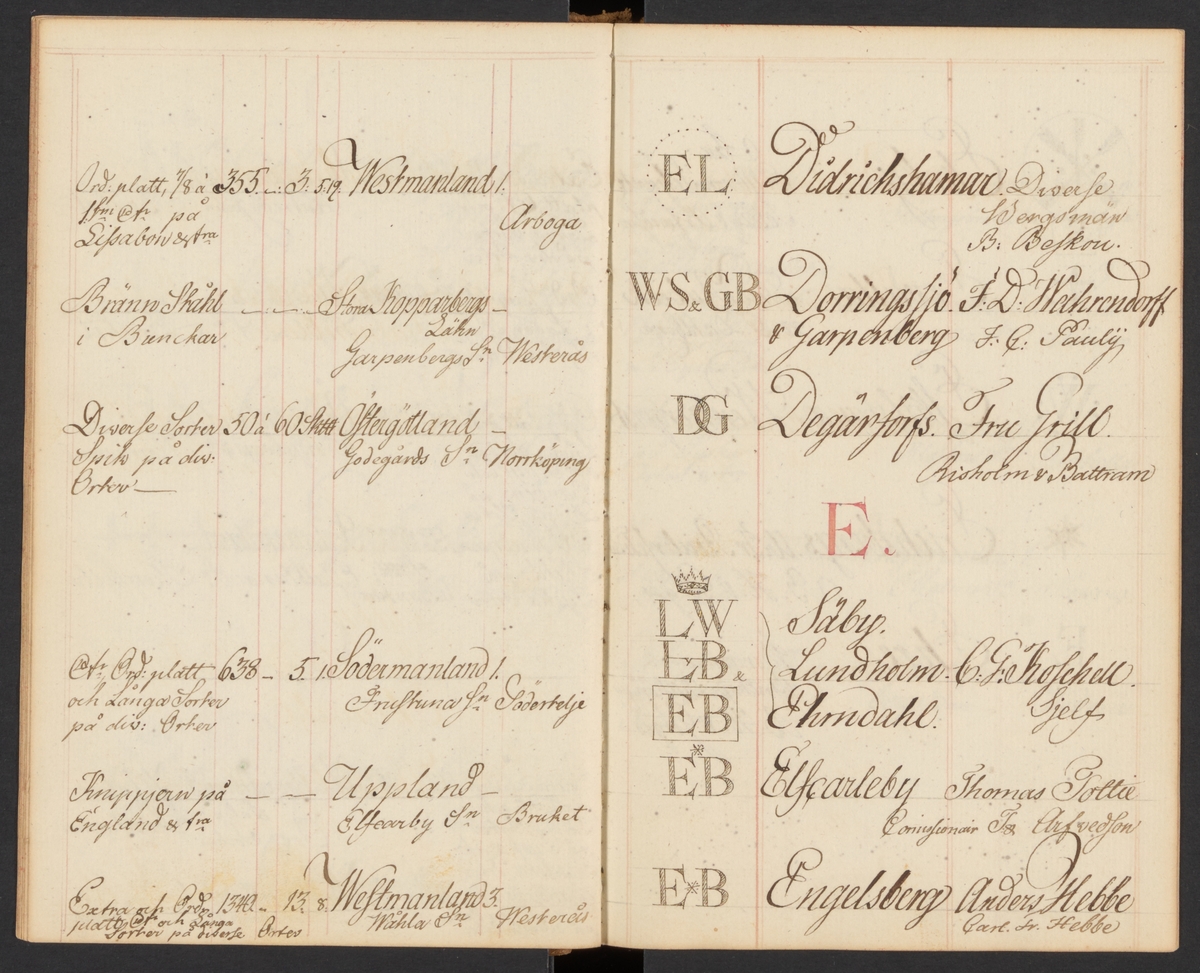 Ord: platt, 7/8 á 355. — 3. 5. 19. Westmanland 1.
på
Lissabon & fra
Arboga
Bränn Ståhl — — — Stora Kopparbergs —
i Bunckar
Lähn
Garpenbergs Sn Westerås
Diverse Sorter 50 á 60 Skttt Östergötland —
Spik på div:
Godegårds Sn Norrköping
Orter —
Ord: platt 638 — 5. 1. Södermanland 1.
och Långa Sorter
Södertelje
på div: Orter
Knippjern på — — Uppland —
England & fra
Elfcarby Sn Bruket
Extra och Ord: 1340. — 13. 8. Westmanland 3.
platt och Långa
Wåhla Sn Westerås
Sorter på diverse Orter
EL Didrichshamar. Diverse
Bergsmän
B: Beskou.
WS & GB Dorringssjö. F: D: Wahrendorff
& Garpenberg F. C. Pauly
DG Degärforfs. Fru Grill.
Risholm & Battram
E.
LW Säby.
EB & Lundholm. C: G: Koschell.
EB Ehrndahl. Sjelf
EB Elfcarleby Thomas Tottie
Comisionair Ts Arfvedson
E*B Engelsberg Anders Hebbe
Carl. Fr. Hebbe